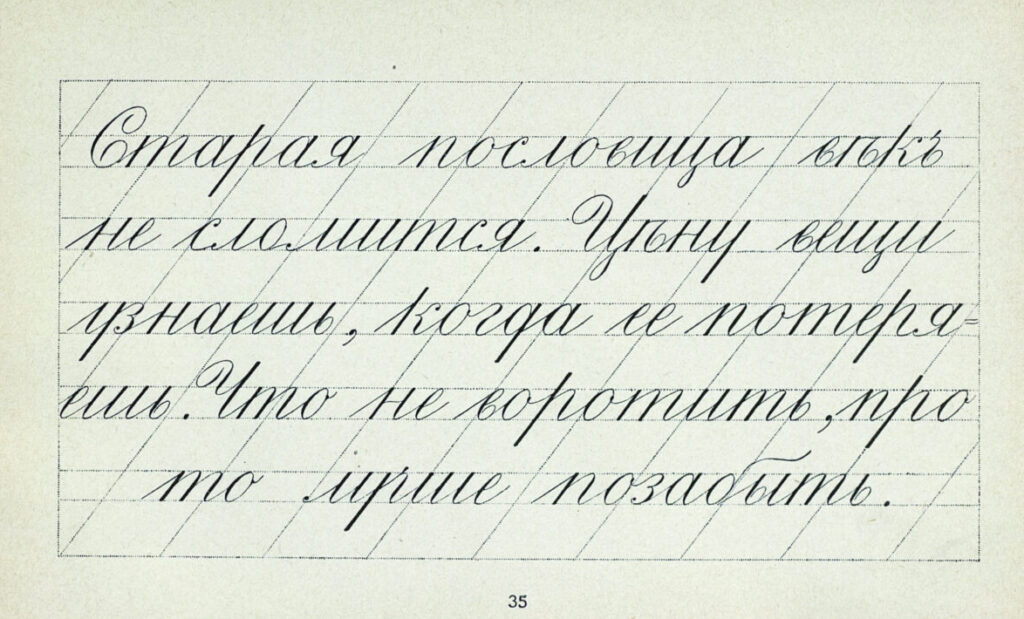 Старая пословица вѣкъ
не сломится. Цѣну вещи
узнаешь, когда ее потеря=
ешь. Что не воротить, про
то лучше позабыть.
35